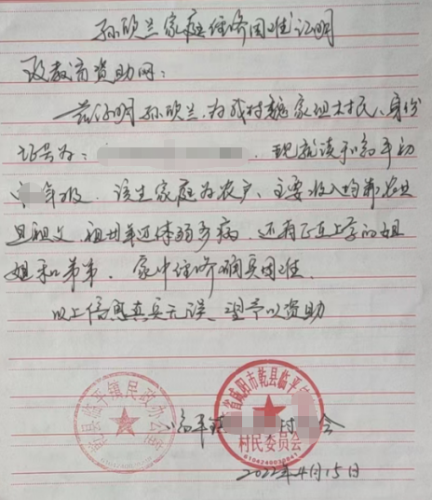 孙欣兰家庭经济困难证明
致教育资助网：
兹证明孙欣兰，为我村魏家组村民，身份
证号为： 现就读于 平初
年级，该生家庭为农户，主要收入均靠务农
且祖父、祖母年迈体弱多病，还有正上学的姐
姐和弟弟，家中经济确实困难。
以上信息真实无误，望予以资助
乾县临平镇民政办公室
省咸阳市乾县临平
村民委员会
6104240030041
平镇 村 会
2022年4月15日